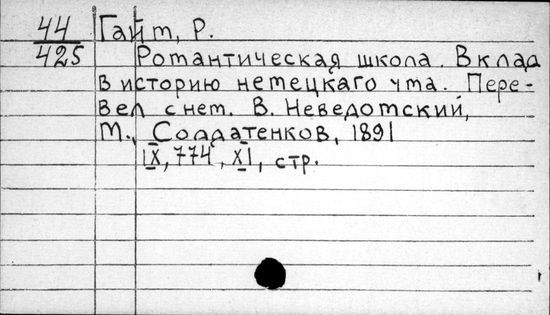 44
425
Гайм, Р.
Романтическая школа. Вклад
в историю немецкаго ума. Пере-
вел с нем. В. Неведомский,
М., Солдатенков, 1891
IX, 774, XI, стр.